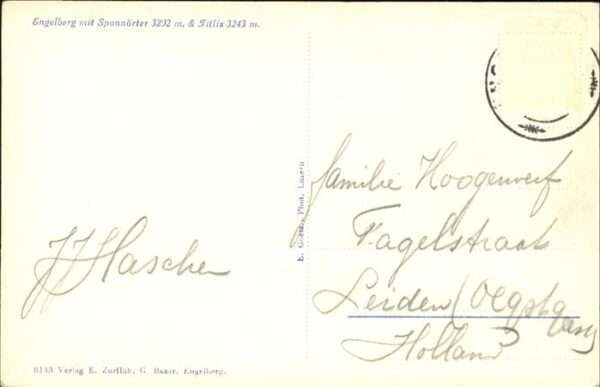 Engelberg mit Spannörter 3202 m. & Titlis 3243 m.
E. Goetz, Phot. Luzern
familie Hoogenwerf
Fagelstraat
Leiden (Oegstgeest
Holland
JJ Hascher
6143 Verlag E. Zurflüh, G. Baxer, Engelberg.